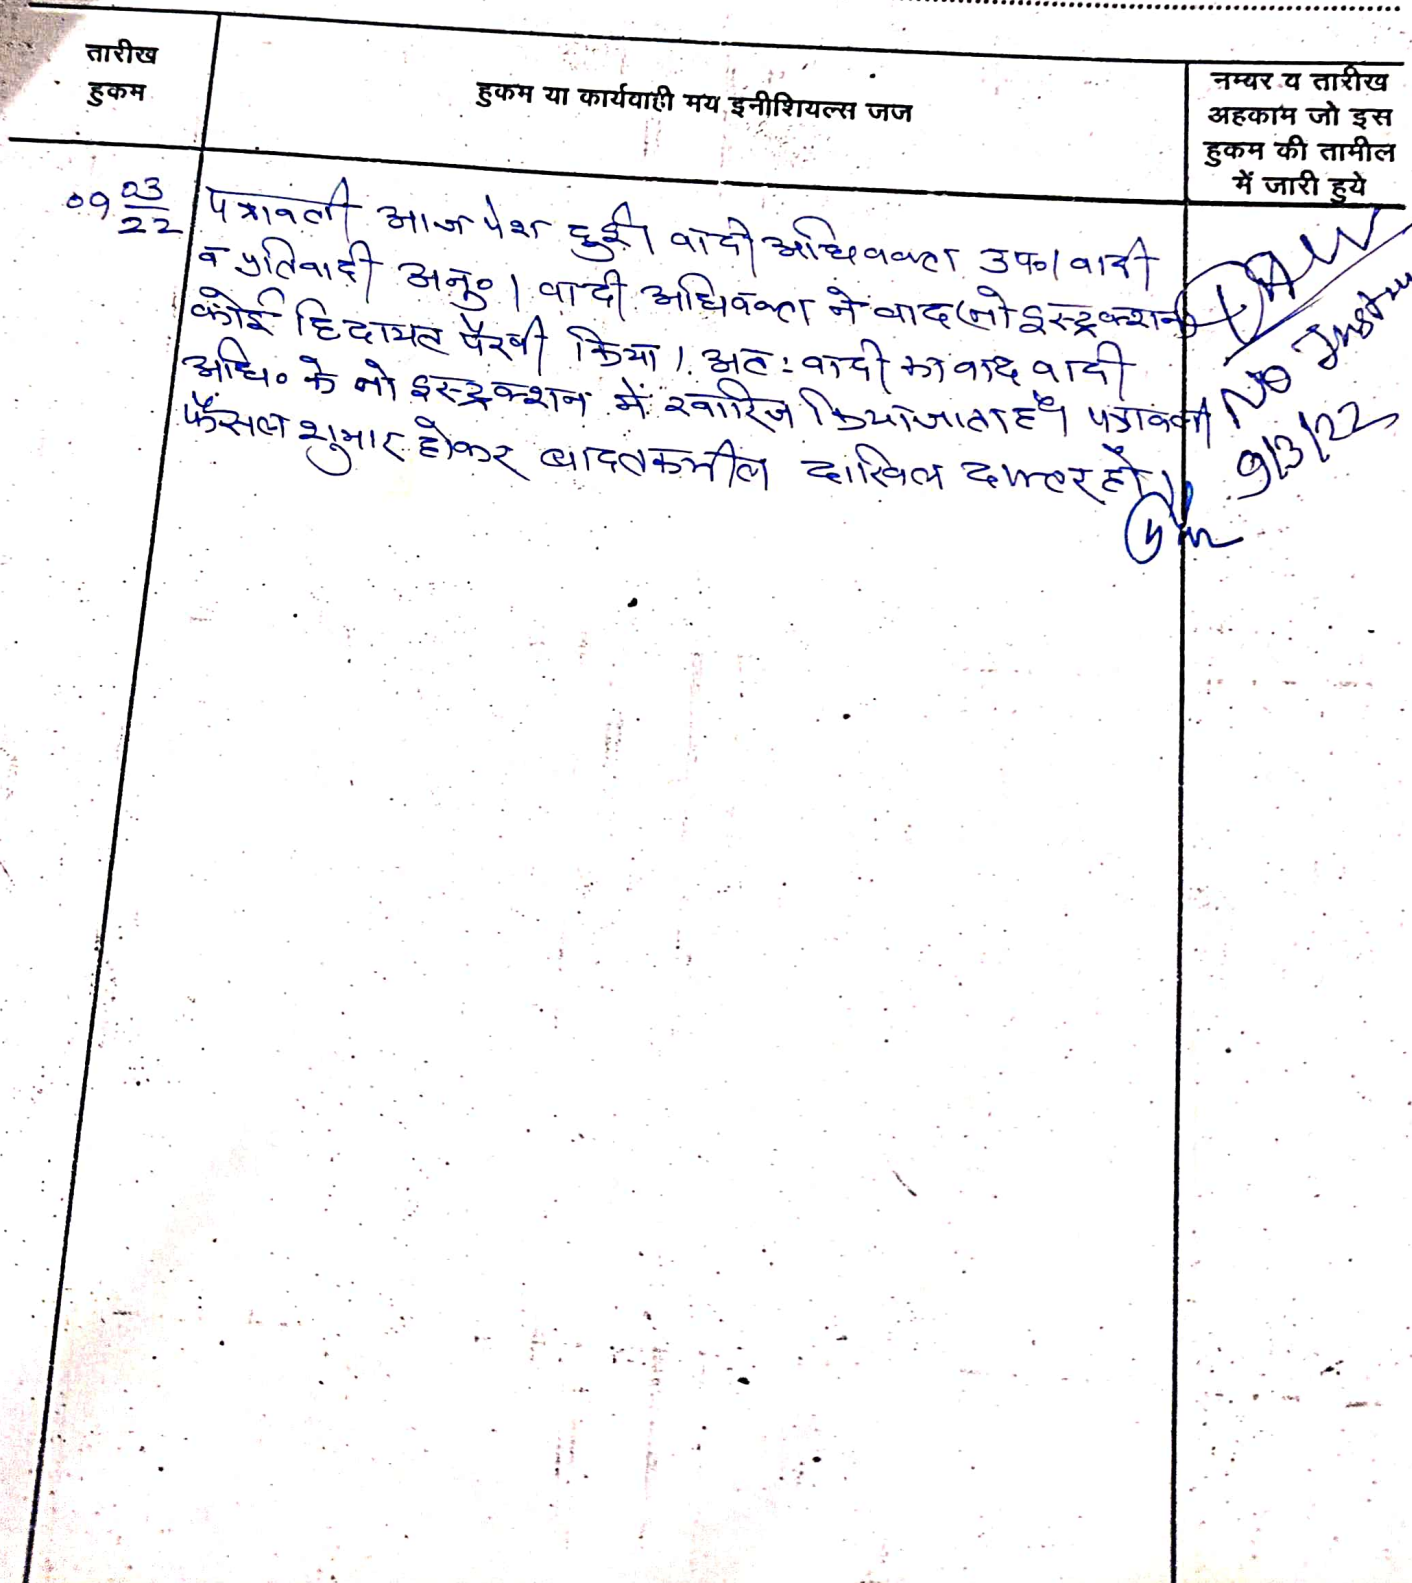 तारीख
हुकम
हुकम या कार्यवाही मय इनीशियल्स जज
नम्बर व तारीख
अहकाम जो इस
हुकम की तामील
में जारी हुये
09 03/22
पत्रावली आज पेश हुई। वादी अधिवक्ता उप०। वादी
व प्रतिवादी अनु०। वादी अधिवक्ता ने वाद (नो इस्ट्रक्शन)
कोई हिदायत पैरवी किया। अतः वादी का वाद वादी
अधि० के नो इस्ट्रक्शन में खारिज किया जाता है। पत्रावली
फैसल शुमार होकर बादतकमील दाखिल दफ्तर हो।
No Instru
9/3/22